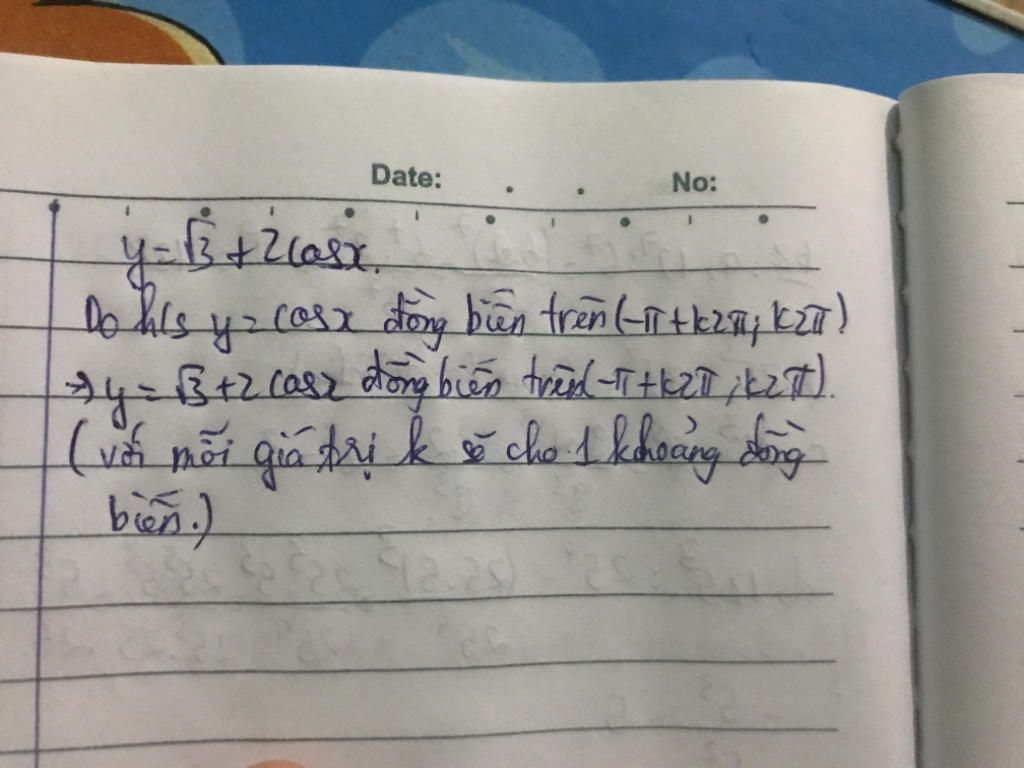 Date: . . No:
y = √3 + 2 cosx.
Do h/s y = cosx đồng biến trên (-π + k2π; k2π)
→ y = √3 + 2 cosx đồng biến trên (-π + k2π; k2π).
( với mỗi giá trị k sẽ cho 1 khoảng đồng
biến.)